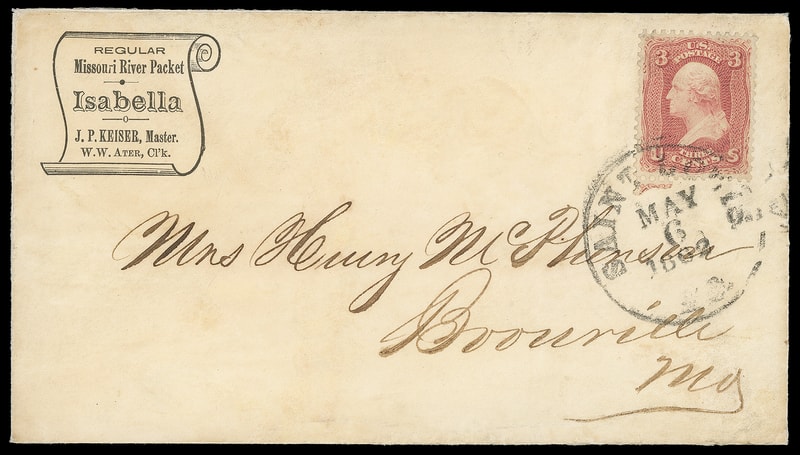 REGULAR
Missouri River Packet
Isabella
J. P. KEISER, Master.
W. W. ATER, Cl'k.
3 U.S. 3
POSTAGE
THREE
U CENTS S
SAINT
MAY
6
1862
MO
Mrs Henry McPherson
Boonville
Mo